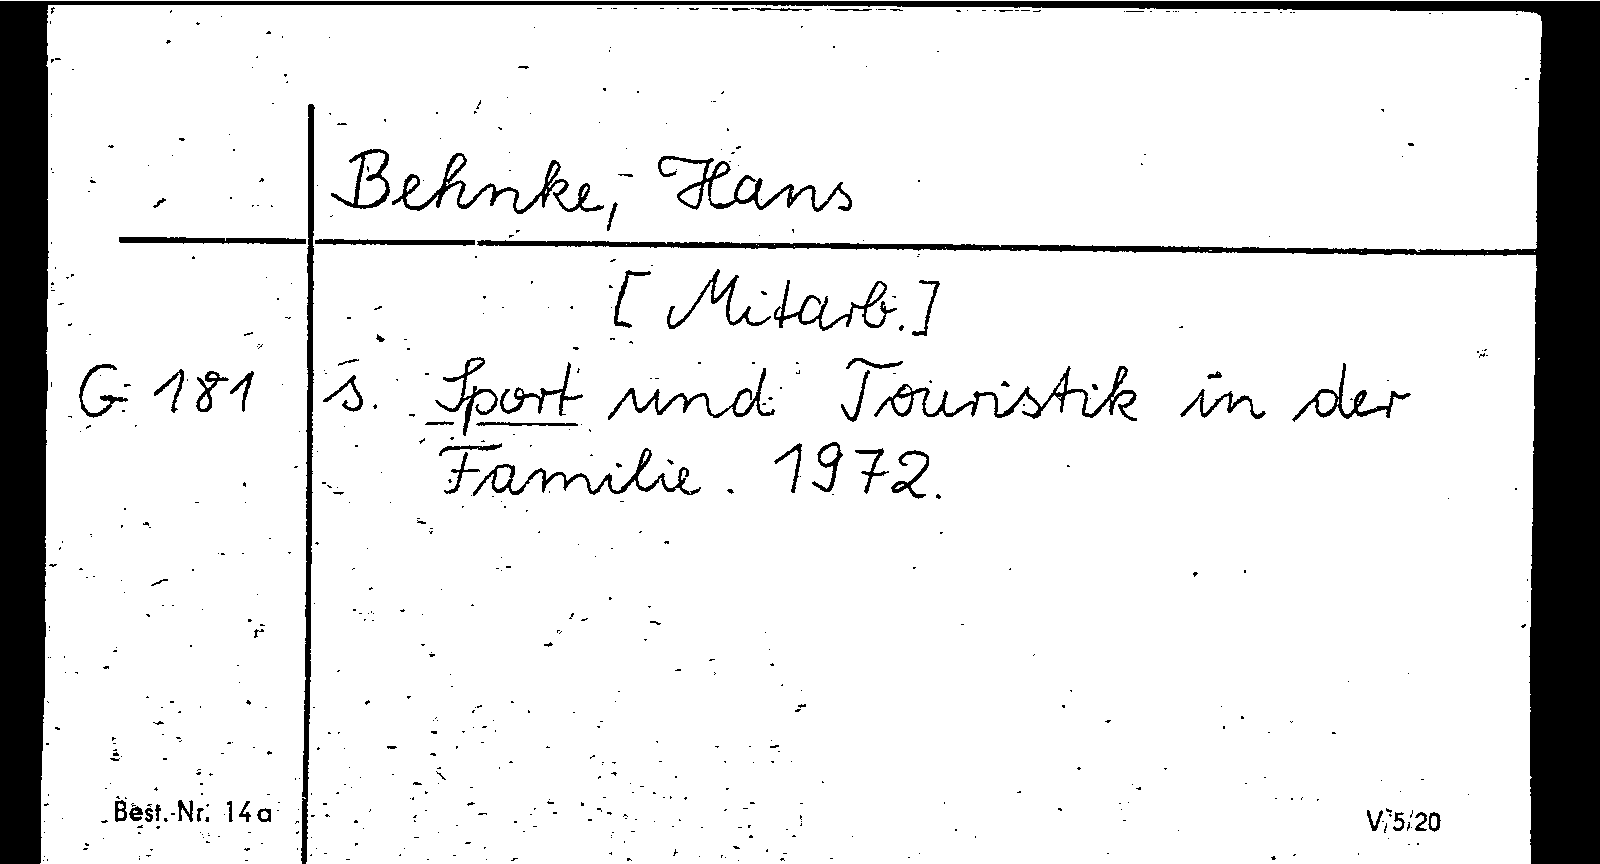 Behnke, Hans
[Mitarb.]
G 181 s. Sport und Touristik in der
Familie. 1972.
Best.-Nr. 14a
V/5/20